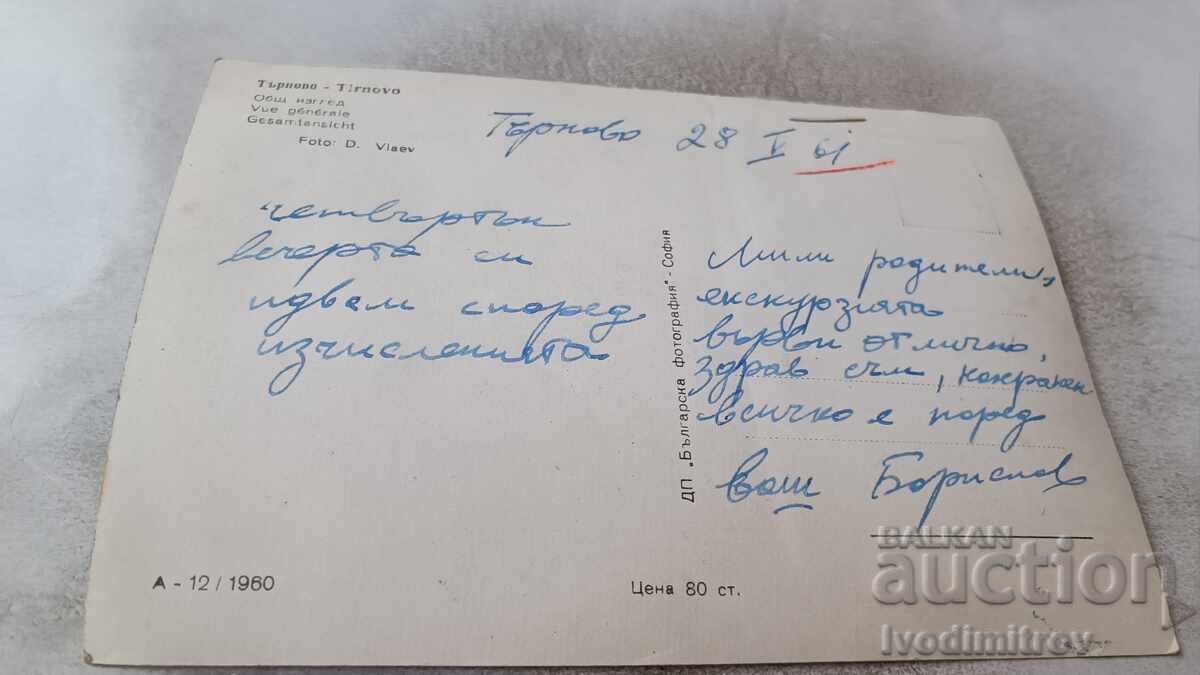 Търново - Tirnovo
Общ изглед
Vue générale
Gesamtansicht
Foto: D. Vlaev
Търново 28 V 61
четвъртък
вечерта си
идвам според
изчисленията
Мили родители,
екскурзията
върви отлично,
здрав съм,
всичко е наред
ваш Борислав
ДП „Българска фотография" - София
А - 12 / 1960
Цена 80 ст.
BALKAN
auction
Ivodimitrov